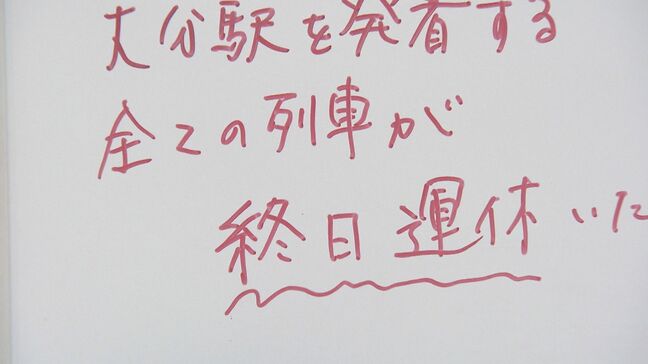 大分駅を発着する
全ての列車が
終日運休いた